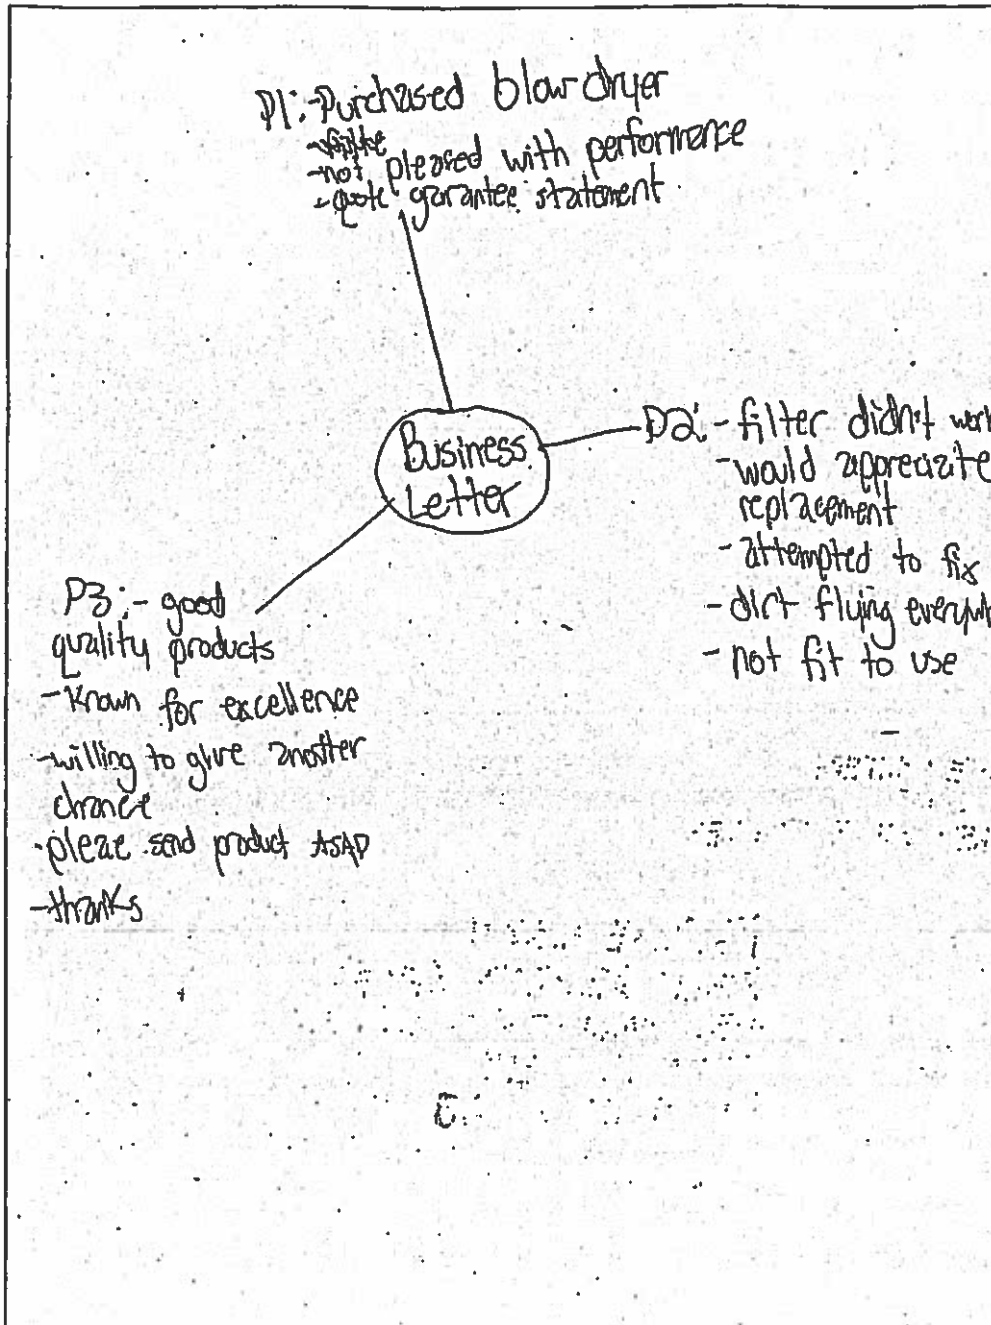 P1:-Purchased blow dryer
-not pleased with performance
-quote garantee statement
Business
Letter
P2:-filter didn't
-would appreciate
replacement
-attempted to fix
-dirt flying
-not fit to use
P3:-good
quality products
-Known for excellence
-willing to give another
chance
-please send product ASAP
-thanks